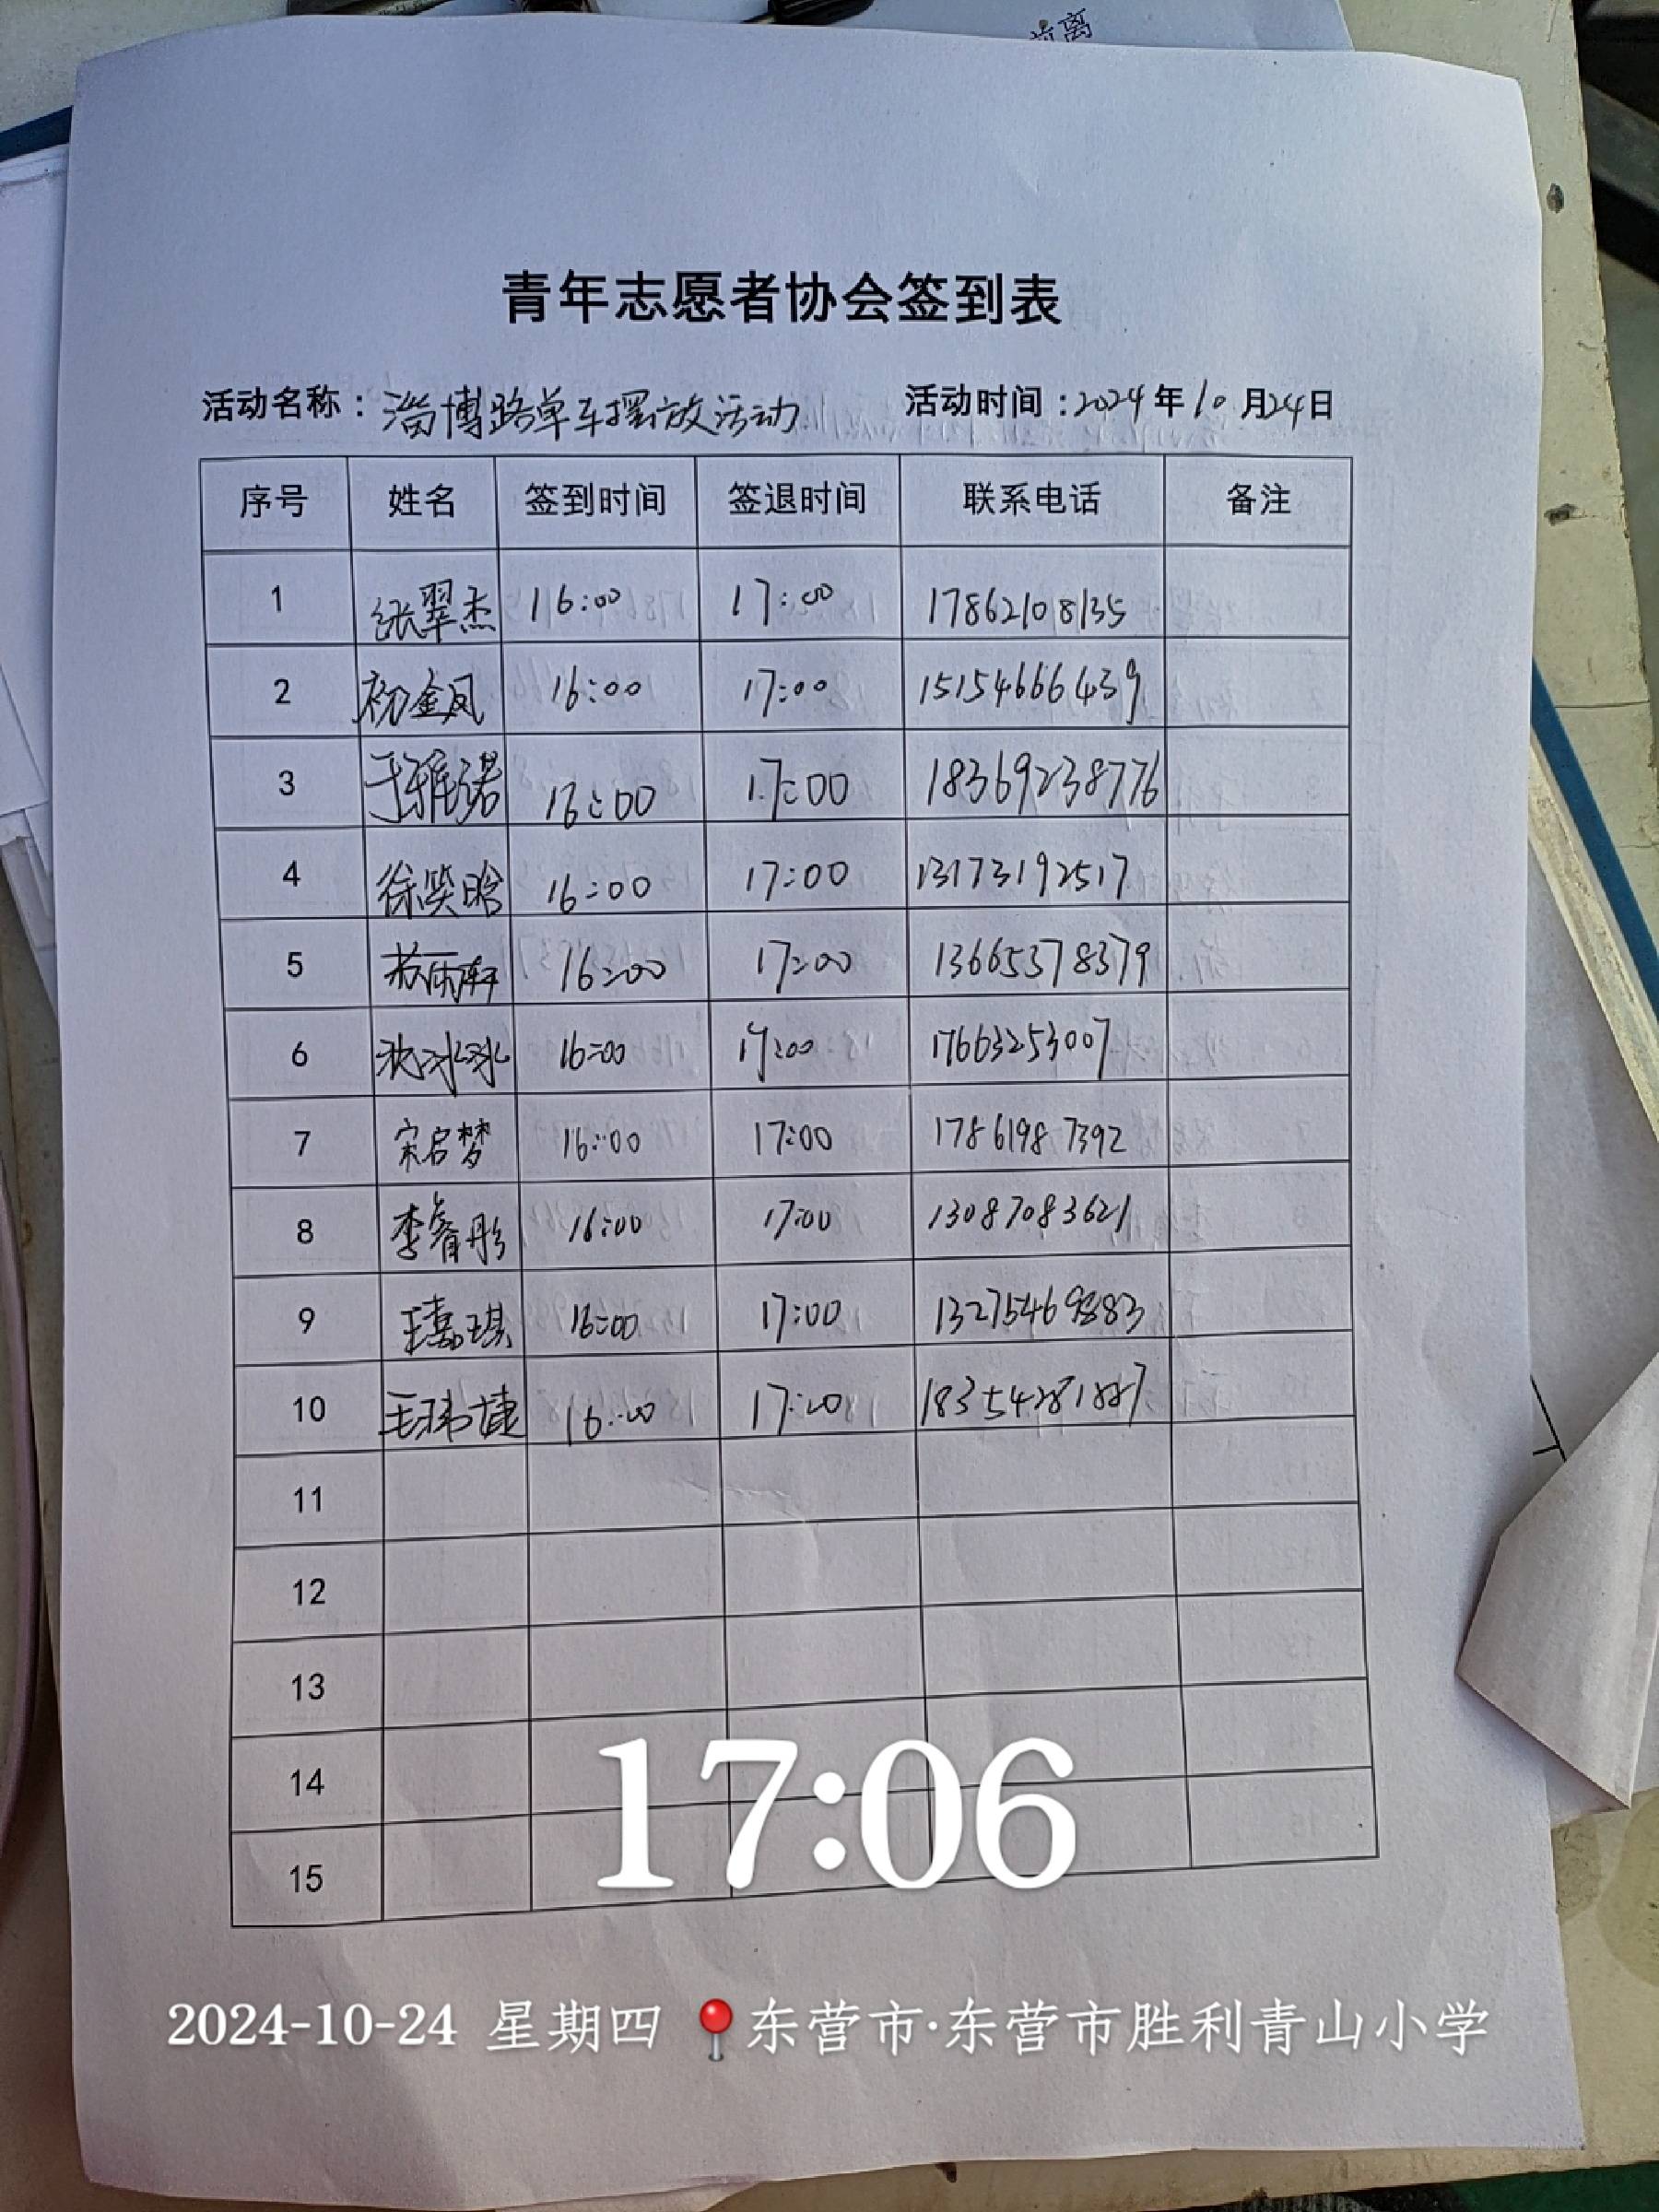 前离
青年志愿者协会签到表
活动名称：淄博路单车摆放活动 活动时间：2024年10月24日
序号 姓名 签到时间 签退时间 联系电话 备注
1 张翠杰 16:00 17:00 17862108135
2 初金凤 16:00 17:00 15154666439
3 于雅诺 16:00 17:00 18369238776
4 徐笑晗 16:00 17:00 13173192517
5 苏雨轩 16:00 17:00 13665378379
6 冰冰 16:00 17:00 17663253007
7 宋启梦 16:00 17:00 17861987392
8 李睿彤 16:00 17:00 13087083621
9 王嘉琪 16:00 17:00 13275469883
10 王玮婕 16:00 17:00
11
12
13
14
15
17:06
2024-10-24 星期四 东营市·东营市胜利青山小学